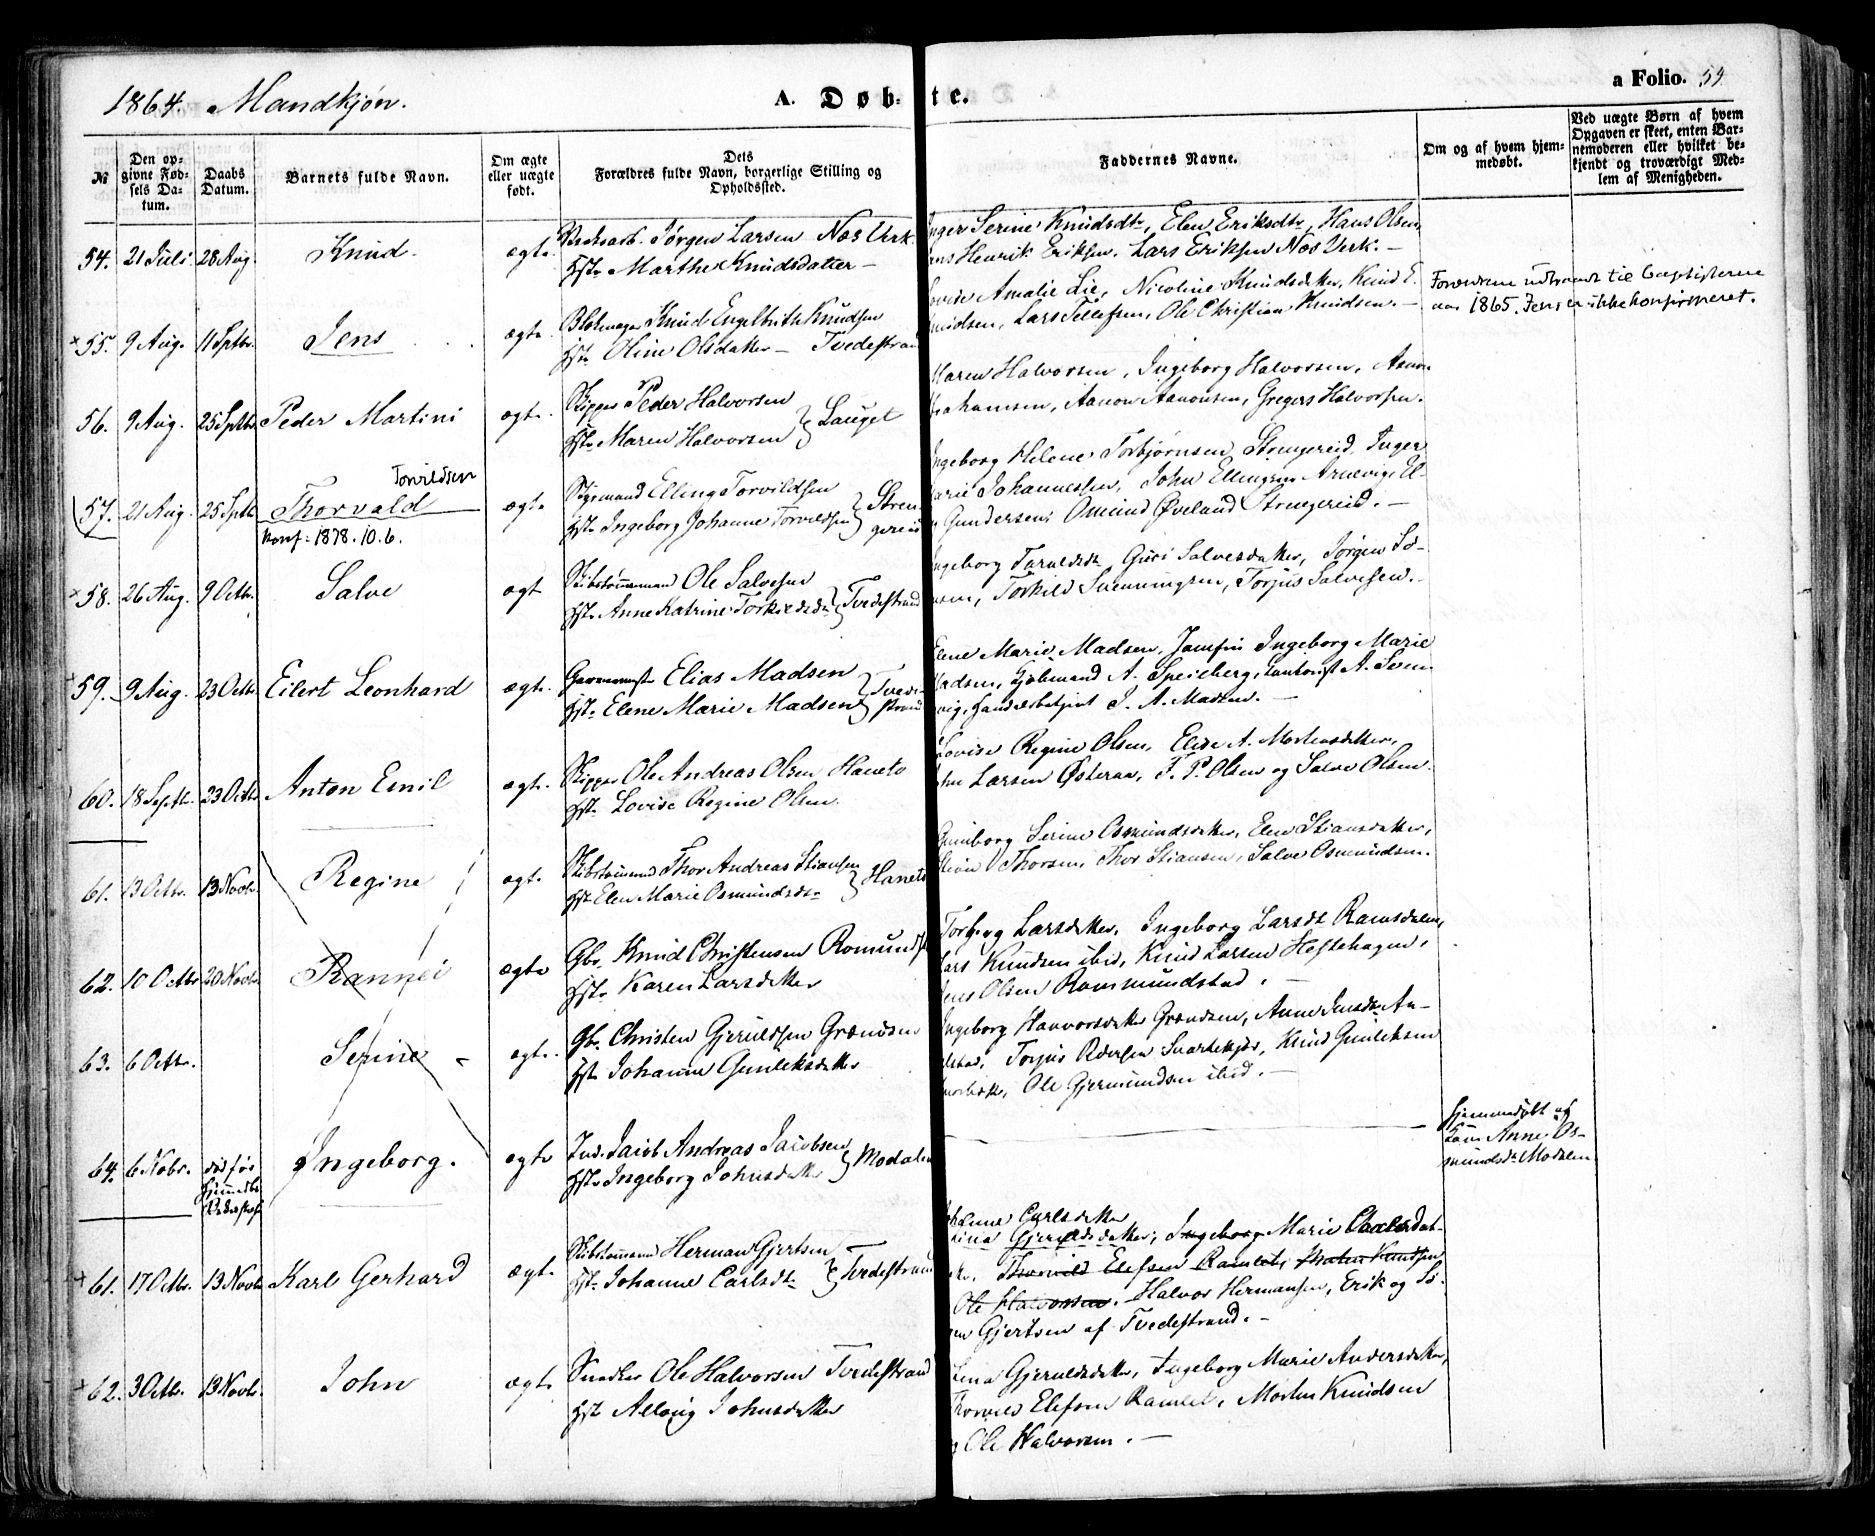 1864. Mandkjøn.
A. Døb- te.
a Folio. 54
№
Den op-
givne Fød-
sels Da-
tum.
Daabs
Datum.
Barnets fulde Navn.
Om ægte
eller uægte
født.
Dets
Forældres fulde Navn, borgerlige Stilling og
Opholdssted.
Faddernes Navne.
Om og af hvem hjem-
medøbt.
Ved uægte Børn af hvem
Opgaven er skeet, enten Bar-
nemoderen eller hvilket be-
kjendt og troværdigt Med-
lem af Menigheden.
54. 21 Juli 28 Aug. Knud. ægte
Jørgen Larsen Næs Verk.
Hst. Marthe Knudsdatter –
Inger Serine Knudsdtr, Elen Eriksdtr, Hans Olsen
Henrik Eriksen. Lars Eriksen Næs Verk. –
× 55. 9 Aug. 11 Septbr. Jens ægte
Blokmager Knud Engelbrith Knudsen
Hst. Oline Olsdatter – Tvedestrand
Lovise Amalie Lie, Nicoline Knudsdatter, Knud E.
Knudsen, Lars Tellefsen, Ole Christian Knudsen. –
Forældrene udtraadt til baptisterne
aar 1865. Jens er ikke konfirmeret.
56. 9 Aug. 25 Septbr Peder Martini ægte
Skipper Peder Halvorsen
Hst. Maren Halvorsen } Lauget
Maren Halvorsen, Ingeborg Halvorsen, Aanon
Abrahamsen, Aanon Aanonsen, Gregers Halvorsen.
57. 21 Aug. 25 Septb Thorvald Torvildsen ægte
Konf. 1878. 10. 6.
Elling Torvildsen
Hst. Ingeborg Johanne Torvildsen } Stren-
gereid
Ingeborg Helene Torbjørnsen Strengereid, Inger
Marie Johannessen, John Ellingsen Arnevig, El-
Gundersen, Osmund Øveland Strengereid. –
× 58. 26 Aug. 9 Octbr. Salve ægt
Skibstømmermand Ole Salvesen
Hst. Anne Katrine Torkildsdr } Tvedestrand
Ingeborg Taraldsdr, Guri Salvesdatter, Jørgen So-
rensen, Torkild Svenningsen, Torjus Salvesen. –
59. 9 Aug. 23 Octbr. Eilert Leonhard ægte.
Elias Madsen
Hst. Elene Marie Madsen } Tvede-
strand
Elene Marie Madsen, Jomfru Ingeborg Marie
Madsen, Kjøbmand A. Speicberg, Kantorist A. Sven-
vig, Handelsbetjent J. A. Madsen. –
60. 18 Septb. 23 Octbr Anton Emil ægte.
Skipper Ole Andreas Olsen Haneto
Hst. Lovise Regine Olsen.
Lovise Regine Olsen, Elise A. Mortensdatter,
Larsen Østeraa, T. P. Olsen og Salve Olsen.
61. 13 Octbr. 13 Novbr. Regine ægt.
Skibstømmermd Thor Andreas Stiansen
Hst. Elen Marie Osmundsdr } Haneto
Gunborg Serine Osmundsdatter, Elen Stiansdatter,
Stian Thorsen, Thor Stiansen, Salve Osmundsen.
62. 10 Octbr 20 Novbr. Rannei ægte
Gbr. Knud Christensen Romundst
Hst. Karen Larsdatter
Torborg Larsdatter, Ingeborg Larsdt Ramsdalen,
Lars Knudsen ibid, Knud Larsen Heftehagen,
Jens Olsen Rommundstad. –
63. 6 Octbr. Serine ægte.
Gbr. Christen Gjeruldsen Grændsen
Hst. Johanne Gunleksdatter
Ingeborg Haavorsdatter Grændsen, Anne Jensdtr An-
Torjus Pedersen Svartekjær, Knud Gunleksen
Ole Gjermundsen ibid. –
64. 6 Nobr. død før
hjemmedbs
ægte
Ingeborg.
Ind. Jacob Andreas Jacobsen
Hst. Ingeborg Johnsdatter } Modalen
Hjemmedøbt af
Anne Os-
mundsdr Modalen
× 61. 17 Octbr. 13 Novbr Karl Gerhard ægt.
Skibstømmermd Herman Gjertsen
Hst. Johanne Carlsdt. } Tvedestrand
Carlsdatter
Gjeruldsdatter, Ingeborg Marie
Thorvild Elefsen Ramlet, Morten Knudsen
Ole Halvorsen. Halvor Hermansen, Erik og
Gjertsen af Tvedestrand. –
× 62. 3 Octbr. 13 Novbr. John ægte
Snedker Ole Halvorsen Tvedestrand
Hst. Allovig Johnsdatter
Gjeruldsdatter, Ingeborg Marie Andersdatter,
Thorvild Elefsen Ramlet, Morten Knudsen
og Ole Halvorsen. –